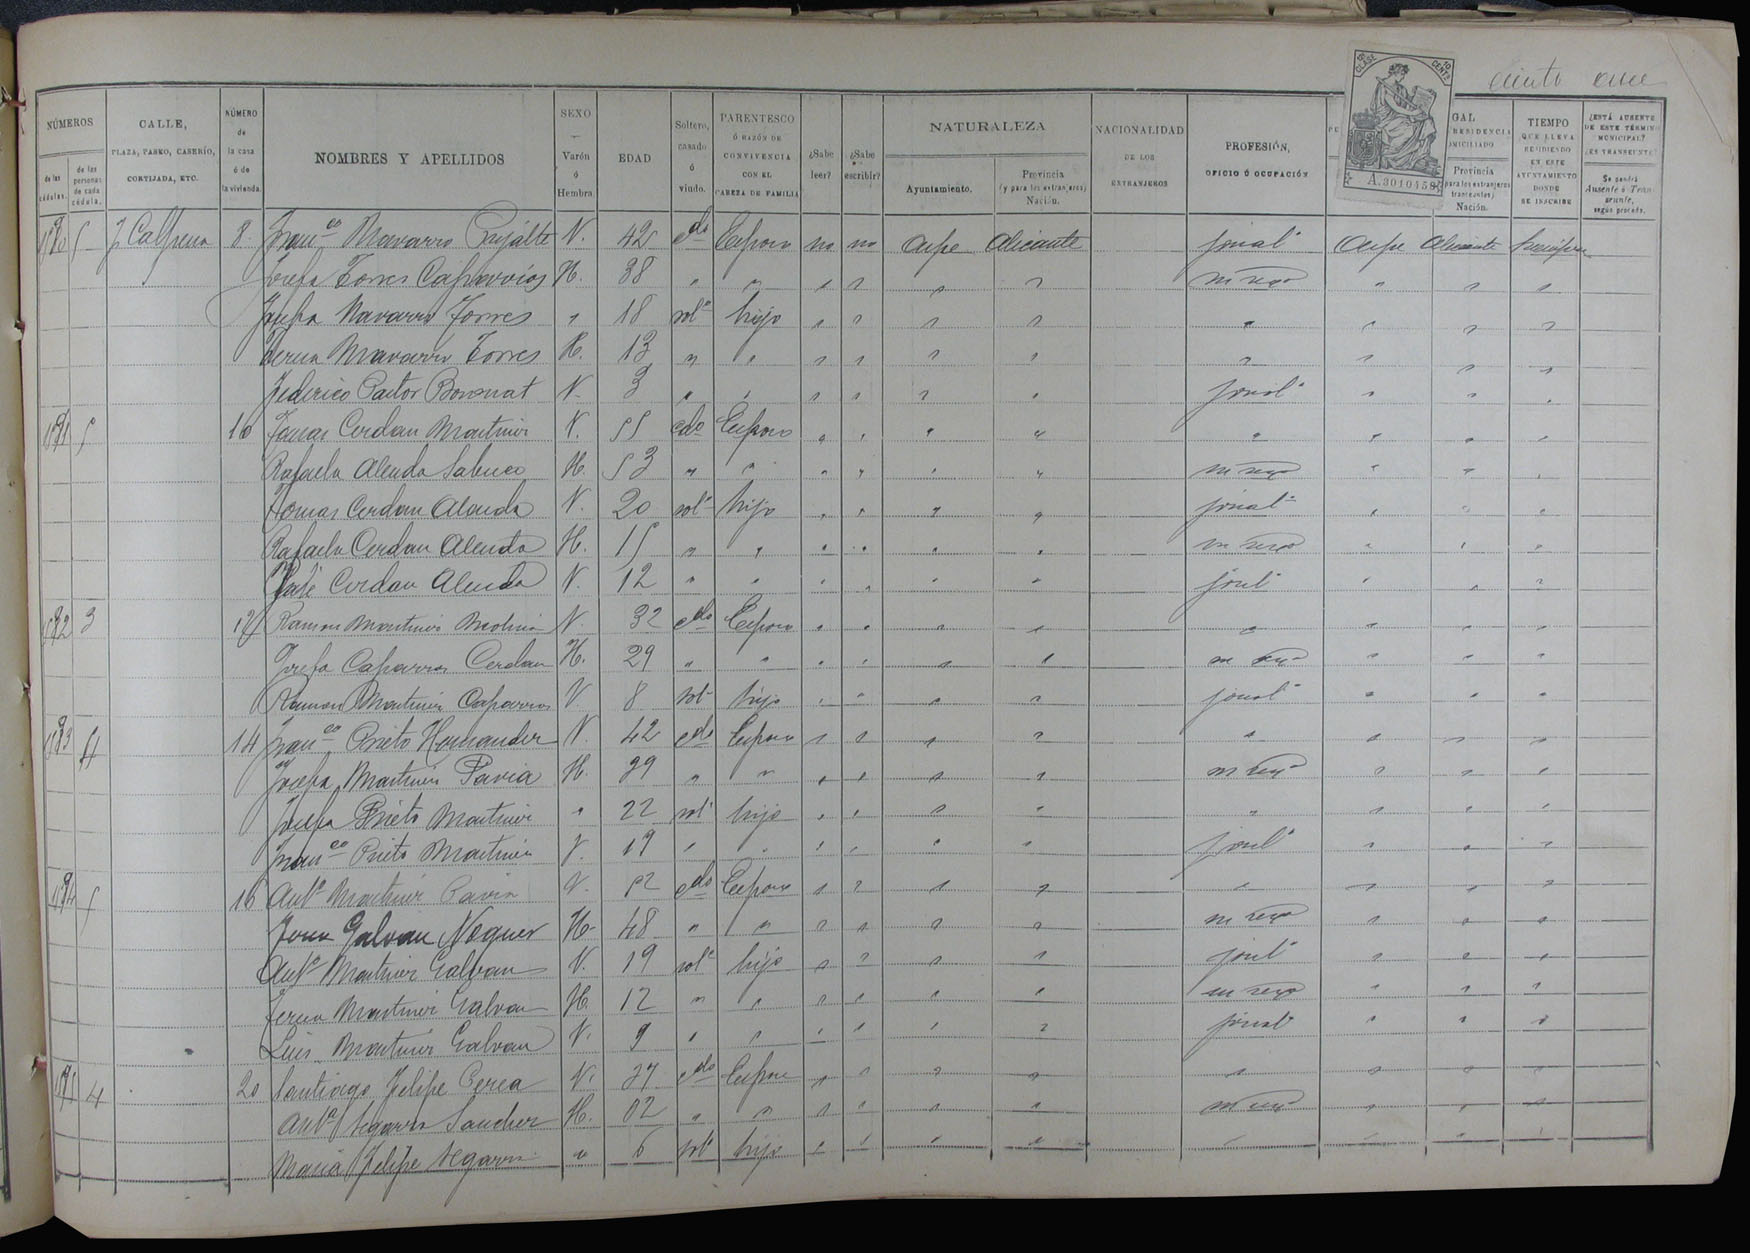 ciento once
5ª CLASE 10 CENTS
A.3010458
NÚMEROS
de las cédulas.
de las personas de cada cédula.
CALLE,
PLAZA, PASEO, CASERÍO, CORTIJADA, ETC.
NÚMERO de la casa ó de la vivienda.
NOMBRES Y APELLIDOS
SEXO
Varón ó Hembra
EDAD
Soltero, casado ó viudo.
PARENTESCO
Ó RAZÓN DE CONVIVENCIA CON EL CABEZA DE FAMILIA
¿Sabe leer?
¿Sabe escribir?
NATURALEZA
Ayuntamiento.
Provincia (y para los extranjeros) Nación.
NACIONALIDAD
DE LOS EXTRANJEROS
PROFESIÓN,
OFICIO Ó OCUPACIÓN
GAL
RESIDENCIA
OMICILIADO
Provincia para los extranjeros transeuntes) Nación.
TIEMPO
QUE LLEVA RESIDIENDO EN ESTE AYUNTAMIENTO DONDE SE INSCRIBE
¿ESTÁ AUSENTE DE ESTE TÉRMINO MUNICIPAL?
¿ES TRANSEUNTE?
Se pondrá Ausente ó Transeunte, según proceda.
5 8 Franco Navarro 42 cdo Esposo no no Aspe Alicante jornal Aspe Alicante siempre
Josefa Torres Caparrios H. 38 " " " " " " " " "
Josefa Navarro Torres " 18 sol hijo " " " " " " " "
Teresa Navarro Torres H. 13 " " " " " " " " " "
Federico Pastor Bononat V. 3 " " " " " " jornal " " "
5 10 Tomas Cerdan Martinez V. 55 cdo Esposo " " " " " " " "
Rafaela Alenda Sabuco H. 53 " " " " " " " " "
Tomas Cerdan Alenda V. 20 sol hijo " " " " jornal " " "
Rafaela Cerdan Alenda H. 15 " " " " " " " " "
José Cerdan Alenda V. 12 " " " " " " jorl " " "
3 12 Ramon Martinez Molina V. 32 cdo Esposo " " " " " " " "
Josefa Caparros Cerdan H. 29 " " " " " " " " "
Ramon Martinez Caparros V. 8 sol hijo " " " " jornal " " "
4 14 Franco Prieto Hernandez V. 42 cdo Esposo " " " " " " " "
Josefa Martinez Pavia H. 39 " " " " " " " " "
Josefa Prieto Martinez " 22 sol hijo " " " " " " " "
Franco Prieto Martinez V. 19 " " " " " " jorl " " "
5 16 Anto Martinez Pavia V. 52 cdo Esposo " " " " " " " "
Galvan Noguer H. 48 " " " " " " " " "
Anto Martinez Galvan V. 19 sol hijo " " " " jorl " " "
Teresa Martinez Galvan H. 12 " " " " " " " " "
Luis Martinez Galvan V. 9 " " " " " " jornal " " "
4 20 Santiago Felipe Cerea V. 37 cdo Esposo " " " " " " " "
Anta Segarra Sanchez H. " " " " " " " " "
Maria Felipe Segarra " 6 sol hijo " " " " " " " "